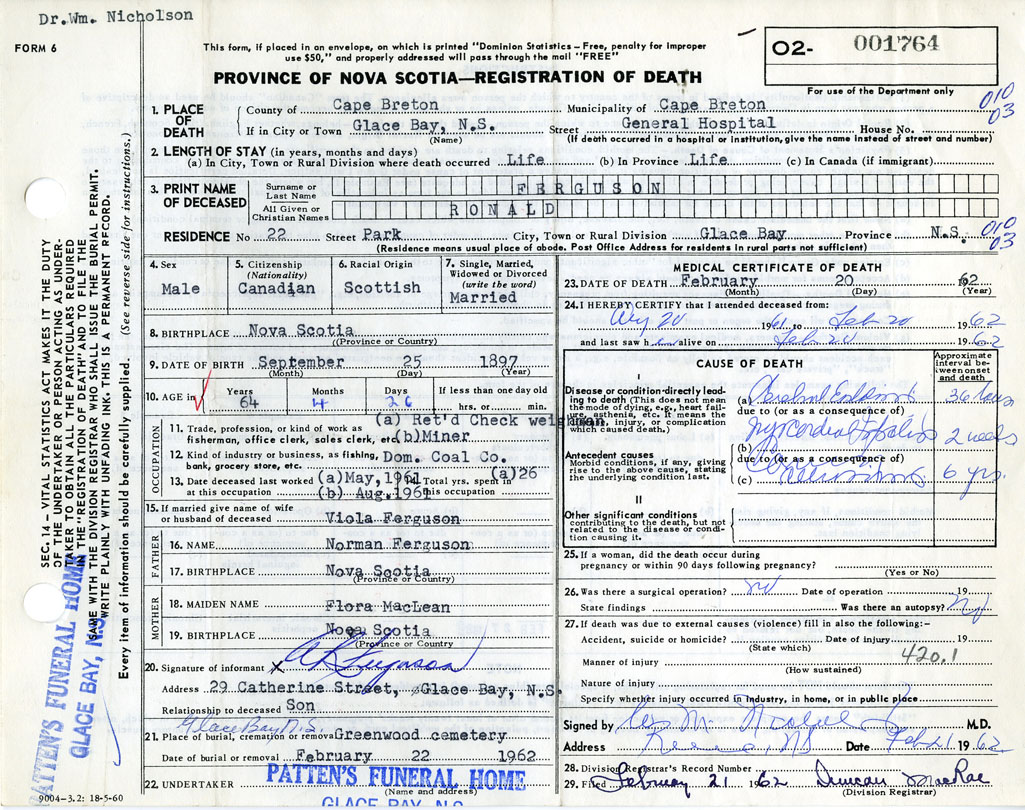 Dr. Wm. Nicholson
FORM 6
This form, if placed in an envelope, on which is printed "Dominion Statistics—Free, penalty for improper
use $50," and properly addressed will pass through the mail "FREE"
PROVINCE OF NOVA SCOTIA—REGISTRATION OF DEATH
O2- 001764
For use of the Department only
010
03
1. PLACE OF DEATH
County of Cape Breton Municipality of Cape Breton
If in City or Town Glace Bay, N.S. Street General Hospital House No.
(Name) (If death occurred in a hospital or institution, give the name instead of street and number)
2. LENGTH OF STAY (in years, months and days)
(a) In City, Town or Rural Division where death occurred Life (b) In Province Life (c) In Canada (if immigrant)
3. PRINT NAME OF DECEASED
Surname or Last Name FERGUSON
All Given or Christian Names RONALD
RESIDENCE No 22 Street Park City, Town or Rural Division Glace Bay Province N.S.
010
03
(Residence means usual place of abode. Post Office Address for residents in rural parts not sufficient)
4. Sex Male
5. Citizenship (Nationality) Canadian
6. Racial Origin Scottish
7. Single, Married, Widowed or Divorced (write the word) Married
8. BIRTHPLACE Nova Scotia
(Province or Country)
9. DATE OF BIRTH September 25 1897
(Month) (Day) (Year)
10. AGE in Years 64 Months 4 Days 26 If less than one day old hrs. or min.
OCCUPATION
11. Trade, profession, or kind of work as fisherman, office clerk, sales clerk, etc. (a) Ret'd Check weighman
(b) Miner
12. Kind of industry or business, as fishing, bank, grocery store, etc. Dom. Coal Co.
13. Date deceased last worked at this occupation (a) May, 1961
(b) Aug. 1961
14 Total yrs. spent in this occupation (a) 26
15. If married give name of wife or husband of deceased Viola Ferguson
FATHER
16. NAME Norman Ferguson
17. BIRTHPLACE Nova Scotia
(Province or Country)
MOTHER
18. MAIDEN NAME Flora MacLean
19. BIRTHPLACE Nova Scotia
(Province or Country)
20. Signature of informant X Ferguson
Address 29 Catherine Street, Glace Bay, N.S.
Relationship to deceased Son
Glace Bay N.S.
21. Place of burial, cremation or removal Greenwood cemetery
Date of burial or removal February 22 1962
22. UNDERTAKER PATTEN'S FUNERAL HOME
(Name and address)
GLACE BAY, N.S.
9004-3.2: 18-5-60
MEDICAL CERTIFICATE OF DEATH
23. DATE OF DEATH February 20 62
(Month) (Day) (Year)
24. I HEREBY CERTIFY that I attended deceased from:
20 1961 to Feb 20 1962
and last saw h alive on Feb 20 1962
CAUSE OF DEATH
Approximate interval between onset and death
I
Disease or condition directly leading to death (This does not mean the mode of dying, e.g., heart failure, asthenia, etc. It means the disease, injury, or complication which caused death.)
(a) Cerebral Embolism 36 hours
due to (or as a consequence of)
Antecedent causes
Morbid conditions, if any, giving rise to the above cause, stating the underlying condition last.
(b) Myocardial 2 weeks
due to (or as a consequence of)
(c) 6 yrs.
II
Other significant conditions contributing to the death, but not related to the disease or condition causing it.
25. If a woman, did the death occur during
pregnancy or within 90 days following pregnancy?
(Yes or No)
26. Was there a surgical operation? no Date of operation 19
State findings Was there an autopsy? No
27. If death was due to external causes (violence) fill in also the following:—
Accident, suicide or homicide? Date of injury 19
(State which)
420.1
Manner of injury
(How sustained)
Nature of injury
Specify whether injury occurred in industry, in home, or in public place
Signed by M.D.
Address NS Date Feb 21 1962
28. Division Registrar's Record Number
29. Filed February 21 1962 Duncan MacRae
(Division Registrar)
SEC. 14—VITAL STATISTICS ACT MAKES IT THE DUTY
OF THE UNDERTAKER OR PERSON ACTING AS UNDER-
TAKER TO OBTAIN ALL THE PARTICULARS REQUIRED
IN THE "REGISTRATION OF DEATH" AND TO FILE THE
SAME WITH THE DIVISION REGISTRAR WHO SHALL ISSUE THE BURIAL PERMIT.
WRITE PLAINLY WITH UNFADING INK. THIS IS A PERMANENT RECORD.
Every item of information should be carefully supplied. (See reverse side for instructions.)
PATTEN'S FUNERAL HOME
GLACE BAY, N.S.